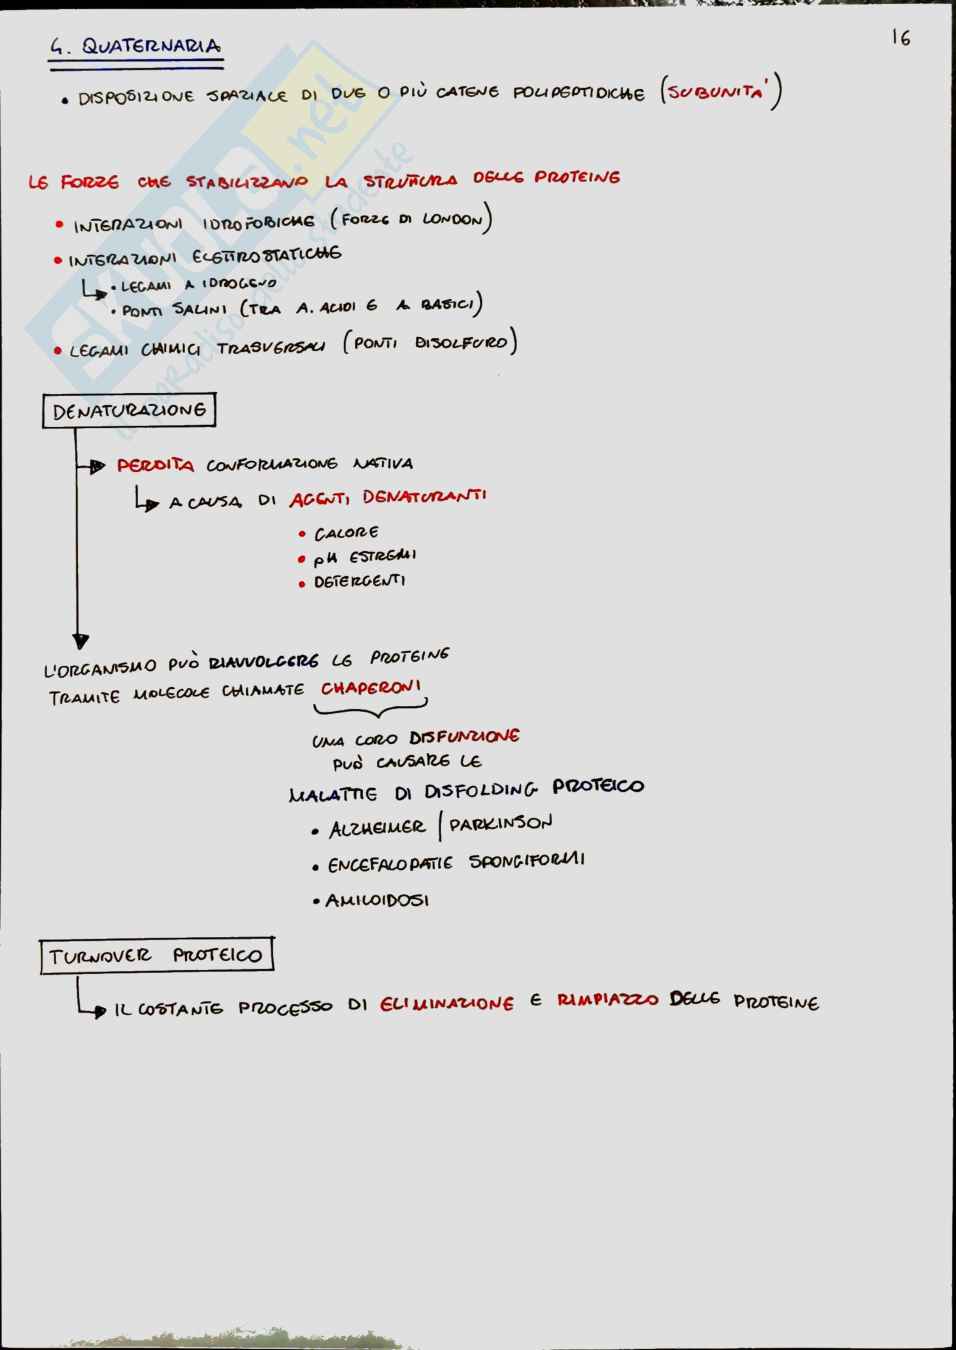 16
4. QUATERNARIA
• DISPOSIZIONE SPAZIALE DI DUE O PIÙ CATENE POLIPEPTIDICHE (SUBUNITA')
LE FORZE CHE STABILIZZANO LA STRUTTURA DELLE PROTEINE
• INTERAZIONI IDROFOBICHE (FORZE DI LONDON)
• INTERAZIONI ELETTROSTATICHE
• LEGAMI A IDROGENO
• PONTI SALINI (TRA A. ACIDI E A. BASICI)
• LEGAMI CHIMICI TRASVERSALI (PONTI DISOLFURO)
DENATURAZIONE
PERDITA CONFORMAZIONE NATIVA
A CAUSA DI AGENTI DENATURANTI
• CALORE
• pH ESTREMI
• DETERGENTI
L'ORGANISMO PUÒ RIAVVOLGERE LE PROTEINE
TRAMITE MOLECOLE CHIAMATE CHAPERONI
UNA LORO DISFUNZIONE
PUÒ CAUSARE LE
MALATTIE DI DISFOLDING PROTEICO
• ALZHEIMER | PARKINSON
• ENCEFALOPATIE SPONGIFORMI
• AMILOIDOSI
TURNOVER PROTEICO
IL COSTANTE PROCESSO DI ELIMINAZIONE E RIMPIAZZO DELLE PROTEINE
SKUOLA.net
il paradiso dello studente